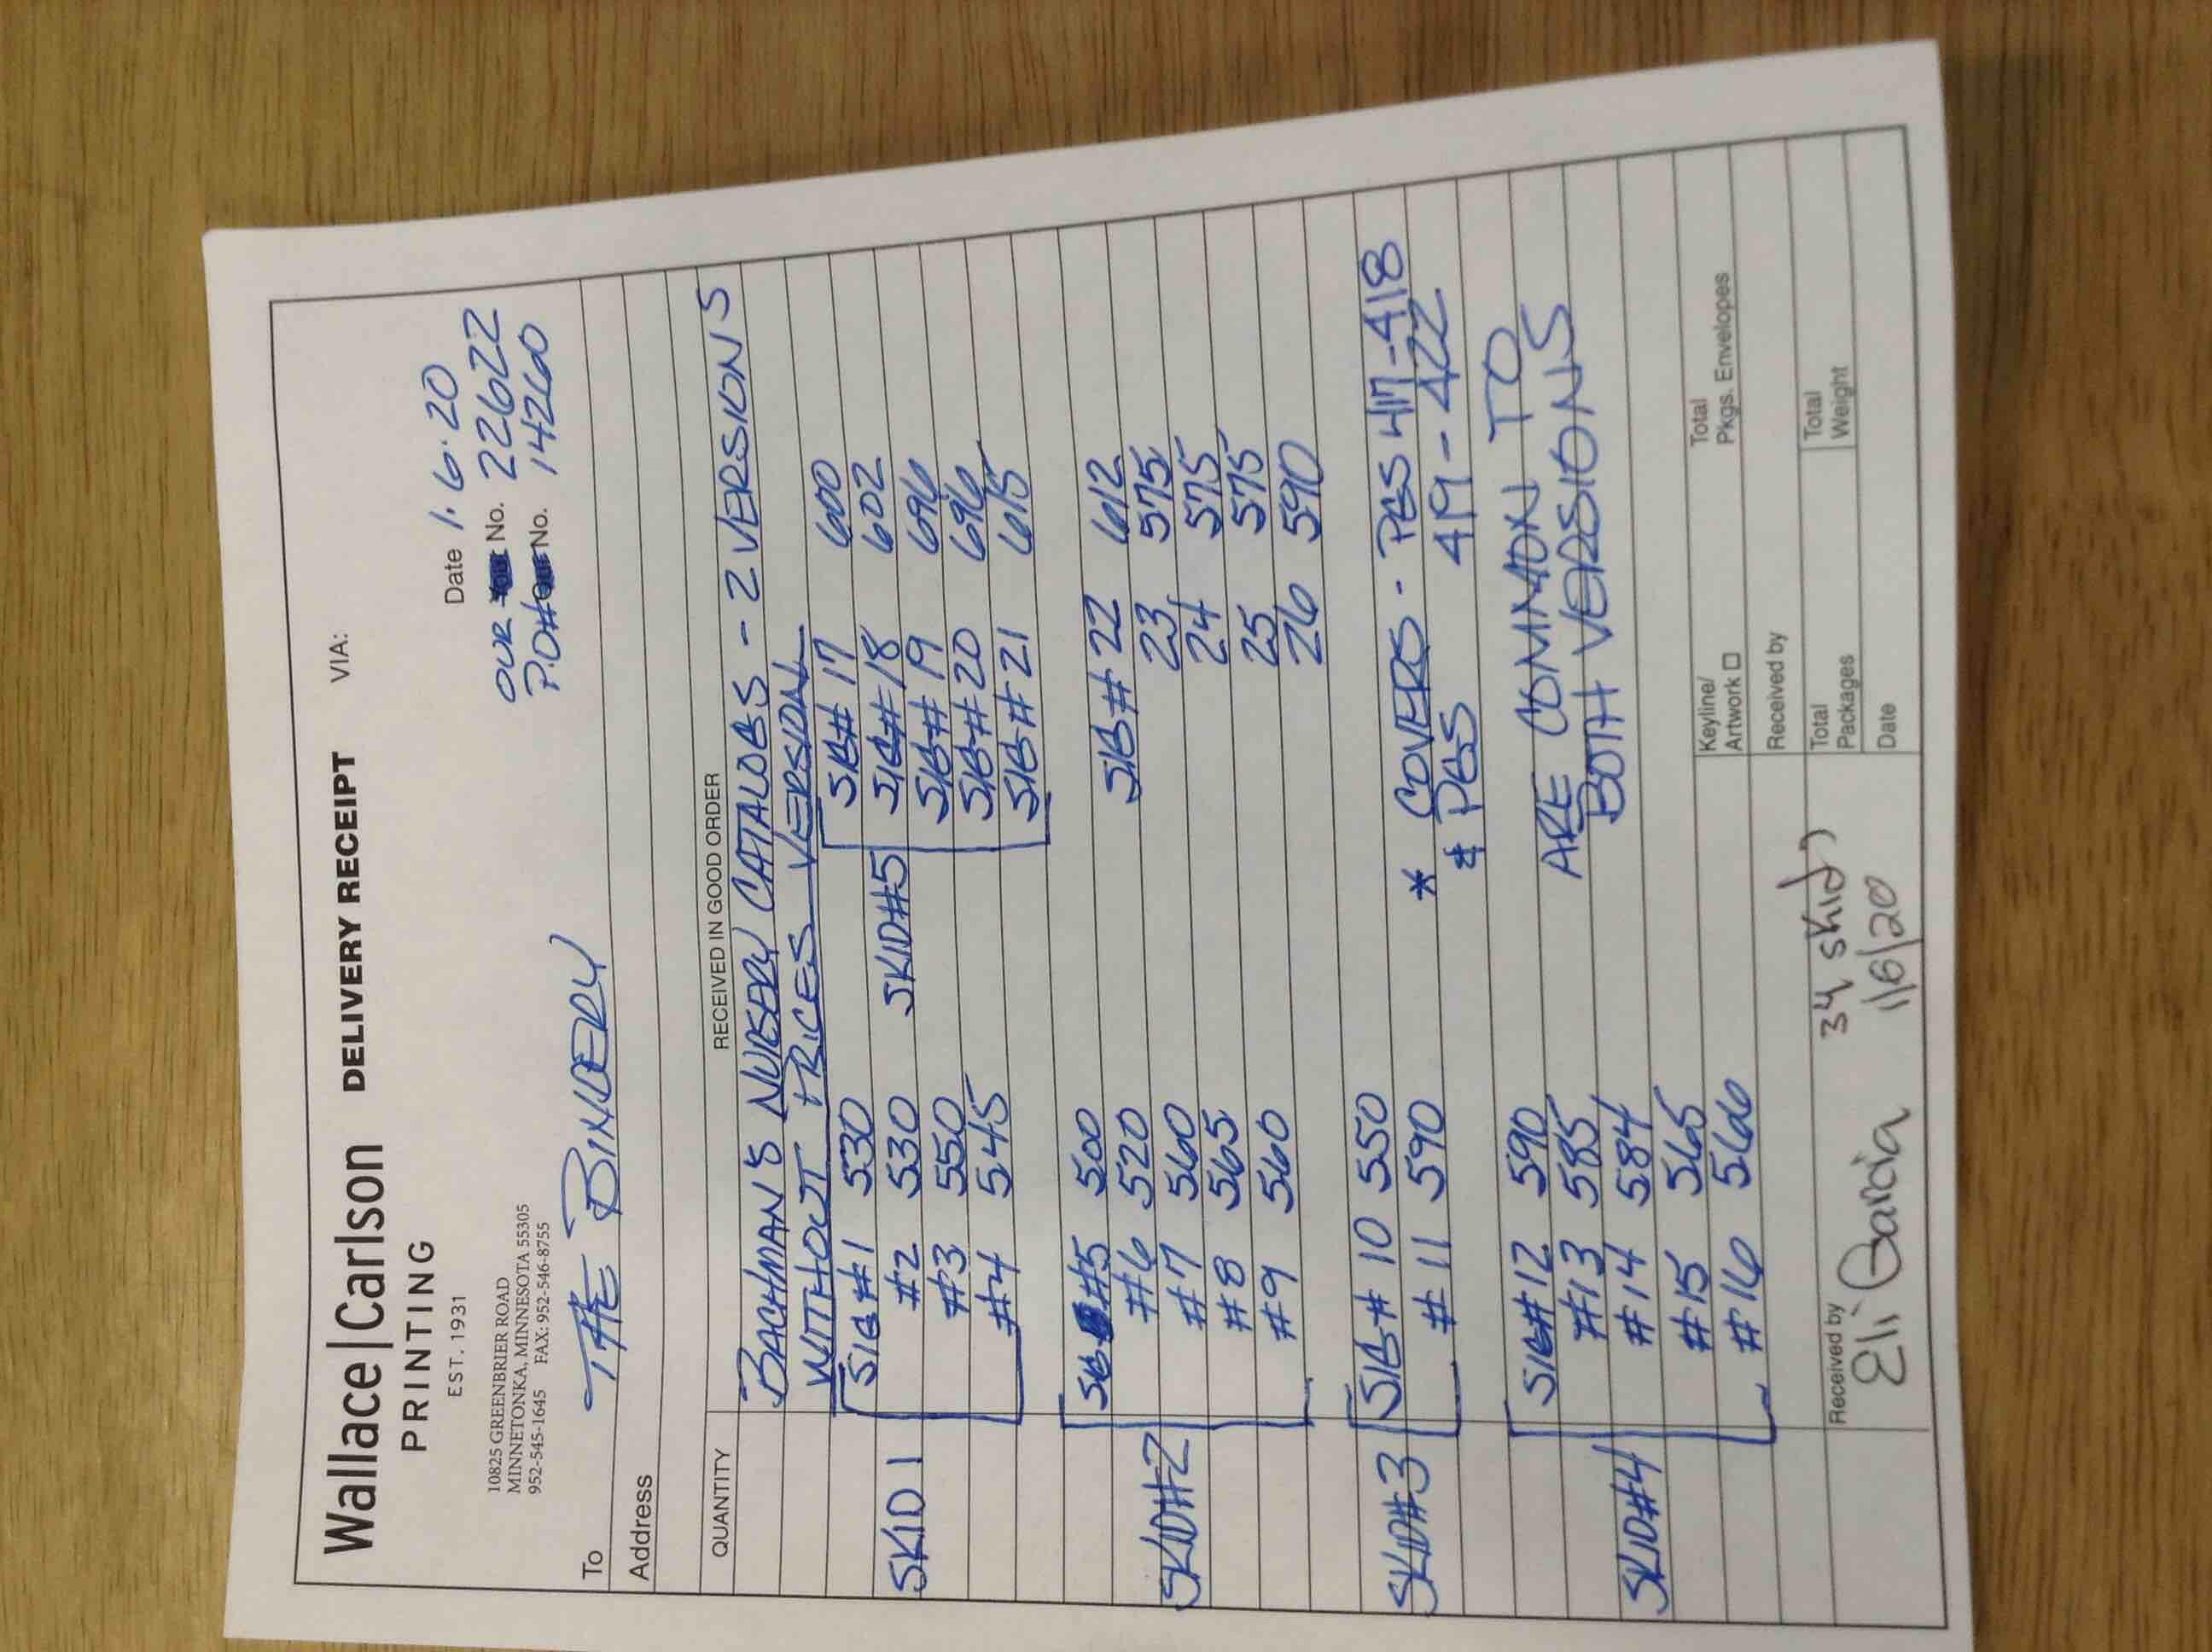 Wallace|Carlson DELIVERY RECEIPT VIA:
PRINTING
EST. 1931
Date 1.6.20
10825 GREENBRIER ROAD
MINNETONKA, MINNESOTA 55305
952-545-1645 FAX: 952-546-8755
OUR No. 22622
P.O# No. 14260
To THE BINDERY
Address
QUANTITY RECEIVED IN GOOD ORDER
BACHMAN'S NURSERY CATALOGS - 2 VERSIONS
WITHOUT PRICES VERSION
SIG #1 530 SIG# 17 600
SKID 1 #2 530 SKID#5 SIG# 18 602
#3 550 SIG# 19 696
#4 545 SIG# 20 696
SIG# 21 615
SIG #5 500 SIG# 22 612
#6 520 23 575
SKID#2 #7 560 24 575
#8 565 25 575
#9 560 26 590
SKID#3 SIG# 10 550 * COVERS - PGS 417-418
# 11 590 & PGS 419-422
SIG#12 590 ARE COMMON TO
#13 585 BOTH VERSIONS
SKID#4 #14 584
#15 565
#16 566
Keyline/ Artwork Total Pkgs. Envelopes
Received by
Received by Eli Garcia 34 skids 1/6/20
Total Packages Total Weight
Date